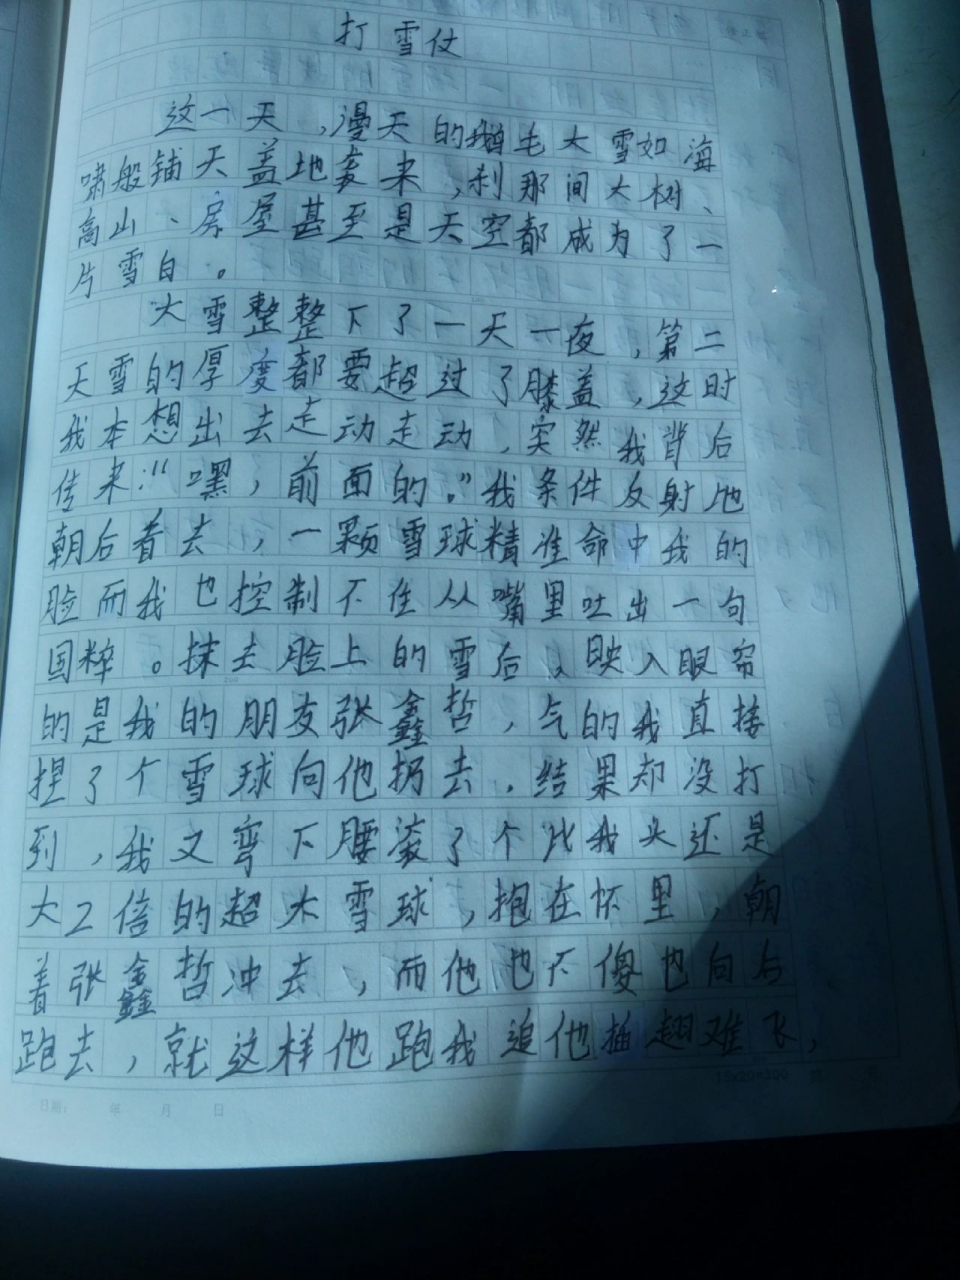 打雪仗
这一天,漫天的鹅毛大雪如海
啸般铺天盖地袭来,刹那间大树、
高山、房屋甚至是天空都成为了一
片雪白。
大雪整整下了一天一夜,第二
天雪的厚度都要超过了膝盖,这时
我本想出去走动走动,突然我背后
传来:“嘿,前面的。”我条件反射地
朝后看去,一颗雪球精准命中我的
脸而我也控制不住从嘴里吐出一句
国粹。抹去脸上的雪后、映入眼帘
的是我的朋友张鑫哲,气的我直接
捏了个雪球向他扔去.结果却没打
到,我又弯下腰滚了个比我头还是
大2倍的超大雪球,抱在怀里,朝
着张鑫哲冲去,而他也不傻也向后
跑去,就这样他跑我追他插翅难飞,
15x20=300
日期: 年 月 日